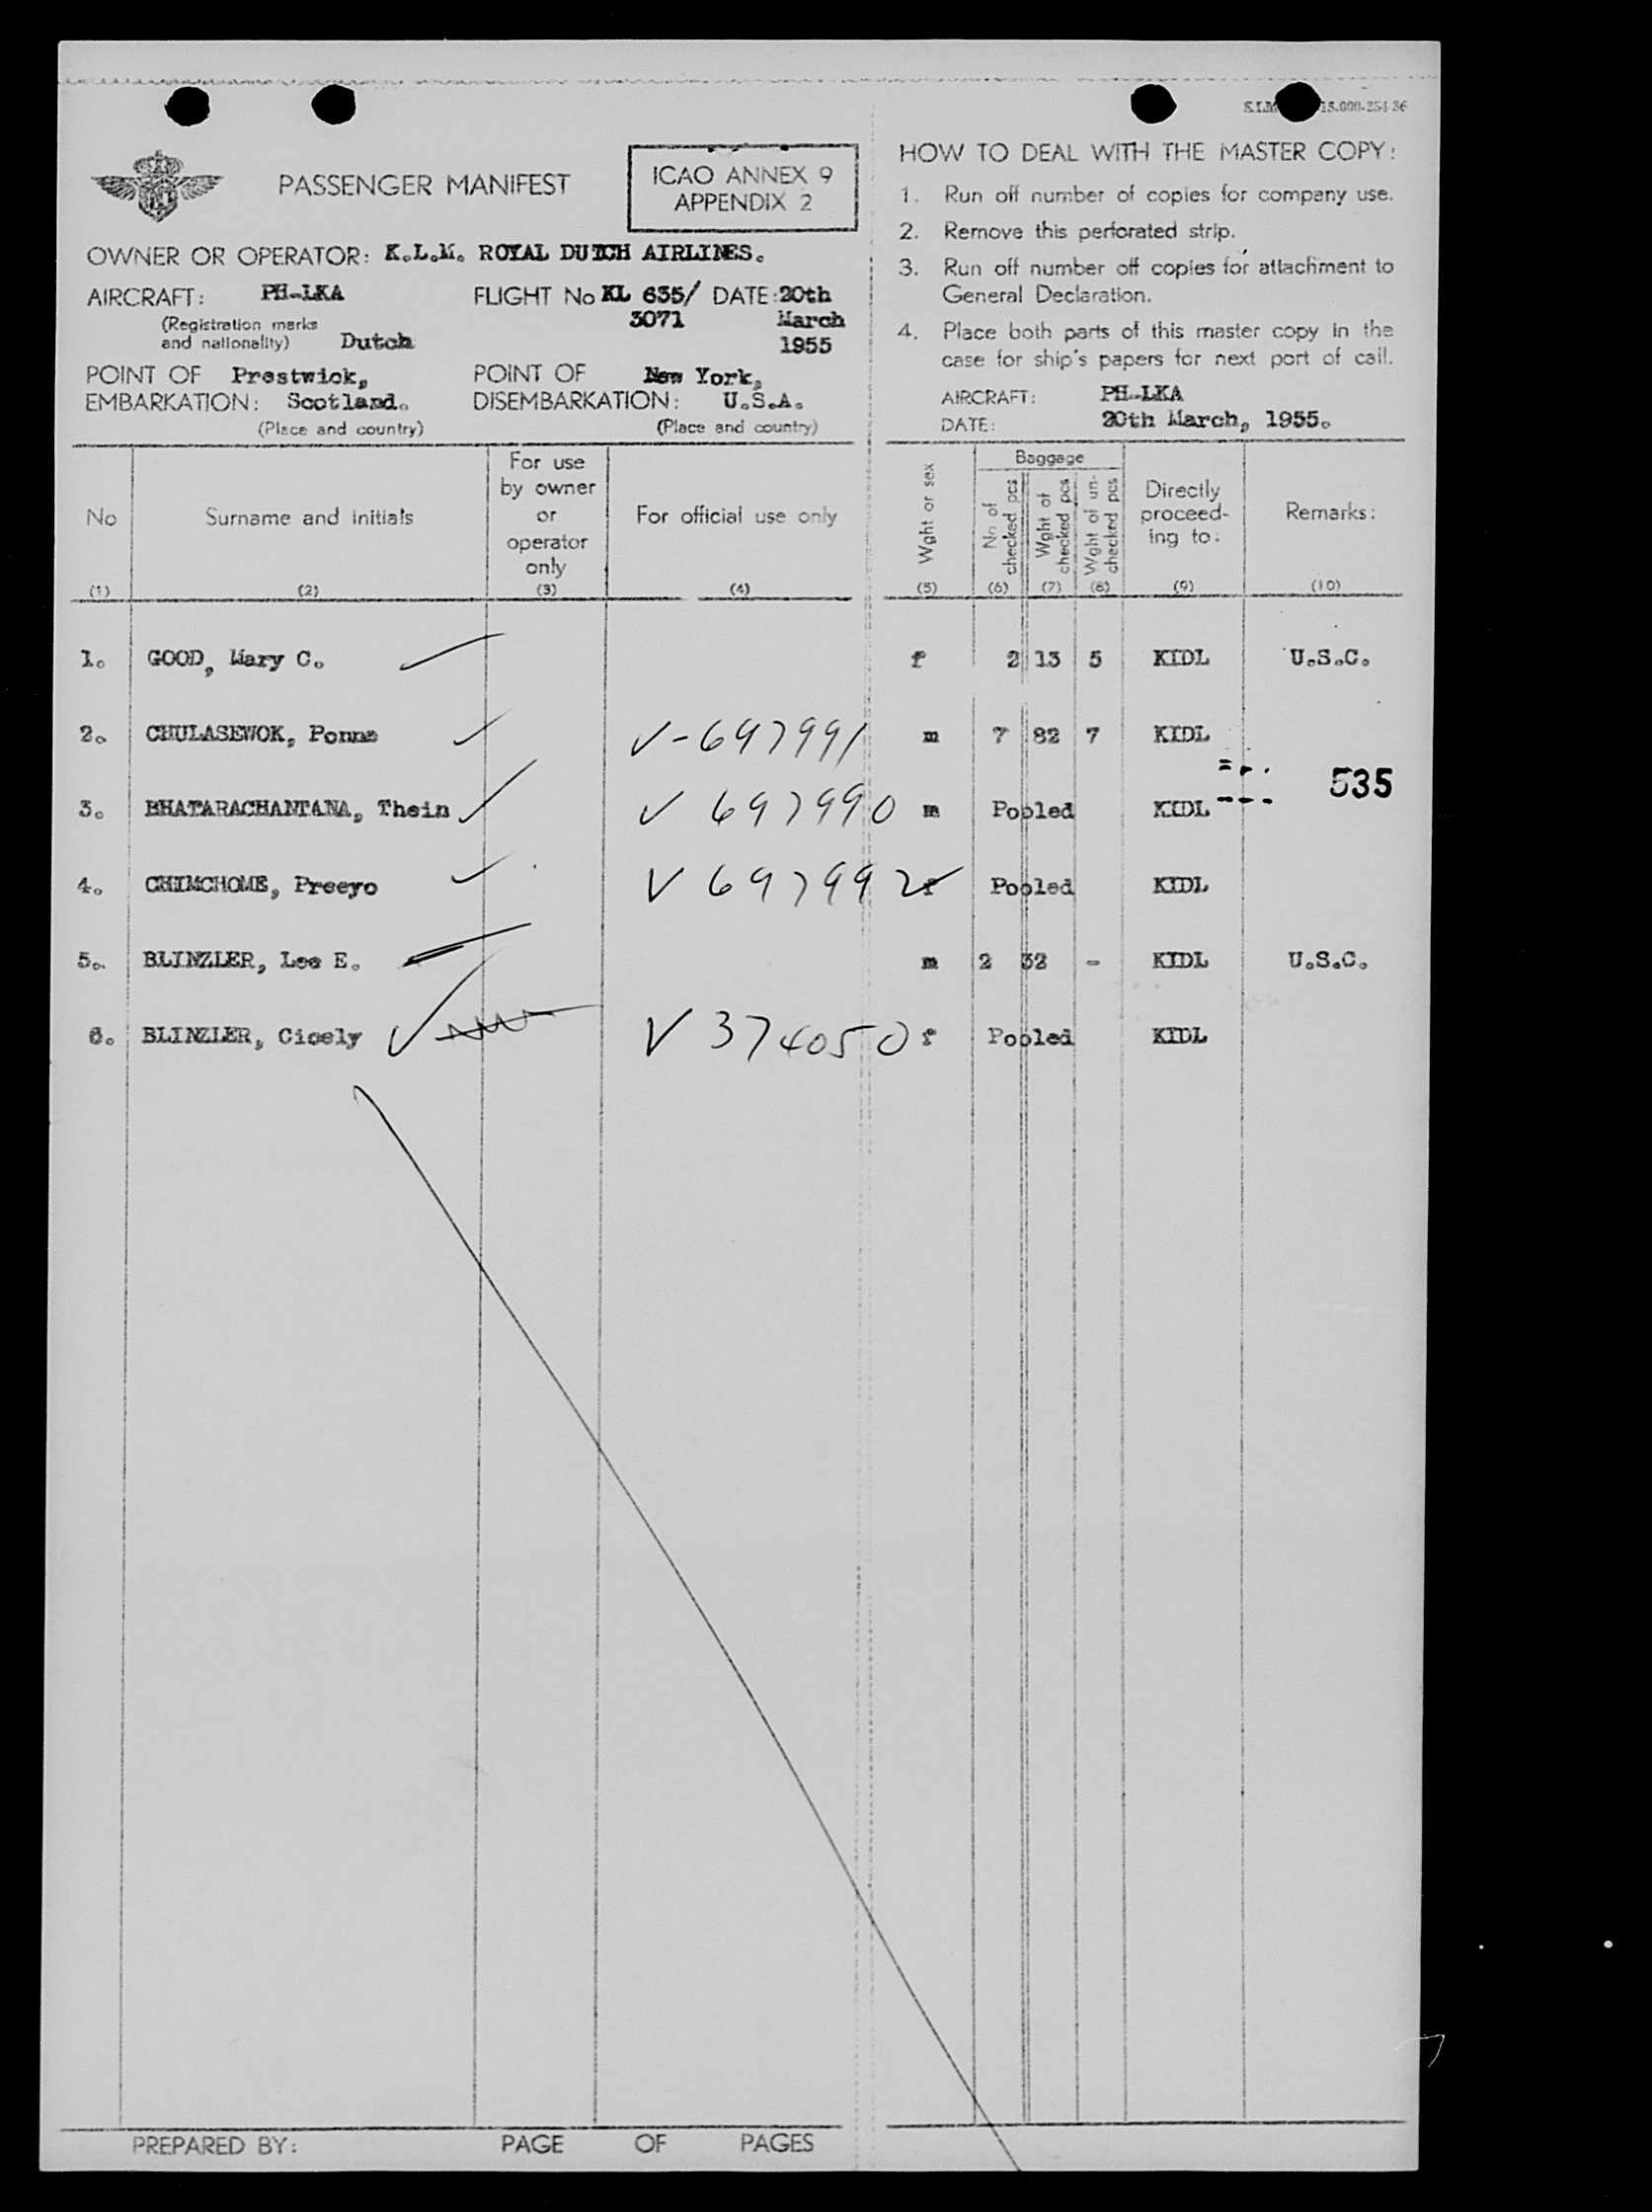 PASSENGER MANIFEST
ICAO ANNEX 9
APPENDIX 2
OWNER OR OPERATOR: K.L.M. ROYAL DUTCH AIRLINES.
AIRCRAFT: PH-LKA FLIGHT No KL 635/ DATE: 20th
(Registration marks 3071 March
and nationality) Dutch 1955
POINT OF Prestwick, POINT OF New York,
EMBARKATION: Scotland. DISEMBARKATION: U.S.A.
(Place and country) (Place and country)
HOW TO DEAL WITH THE MASTER COPY:
1. Run off number of copies for company use.
2. Remove this perforated strip.
3. Run off number off copies for attachment to
General Declaration.
4. Place both parts of this master copy in the
case for ship's papers for next port of call.
AIRCRAFT: PH-LKA
DATE: 20th March, 1955.
No
(1)
Surname and initials
(2)
For use
by owner
or
operator
only
(3)
For official use only
(4)
Wght or sex
(5)
Baggage
No of
checked pcs
(6)
Wght of
checked pcs
(7)
Wght of un-
checked pcs
(8)
Directly
proceed-
ing to:
(9)
Remarks:
(10)
1. GOOD, Mary C. f 2 13 5 KIDL U.S.C.
2. CHULASEWOK, Ponna V-697991 m 7 82 7 KIDL
535
3. BHATARACHANTANA, Thein V 697990 m Pooled KIDL
4. CHIMCHOME, Preeyo V 697992 f Pooled KIDL
5. BLINZLER, Lee E. m 2 32 - KIDL U.S.C.
6. BLINZLER, Cicely V 374050 f Pooled KIDL
PREPARED BY: PAGE OF PAGES